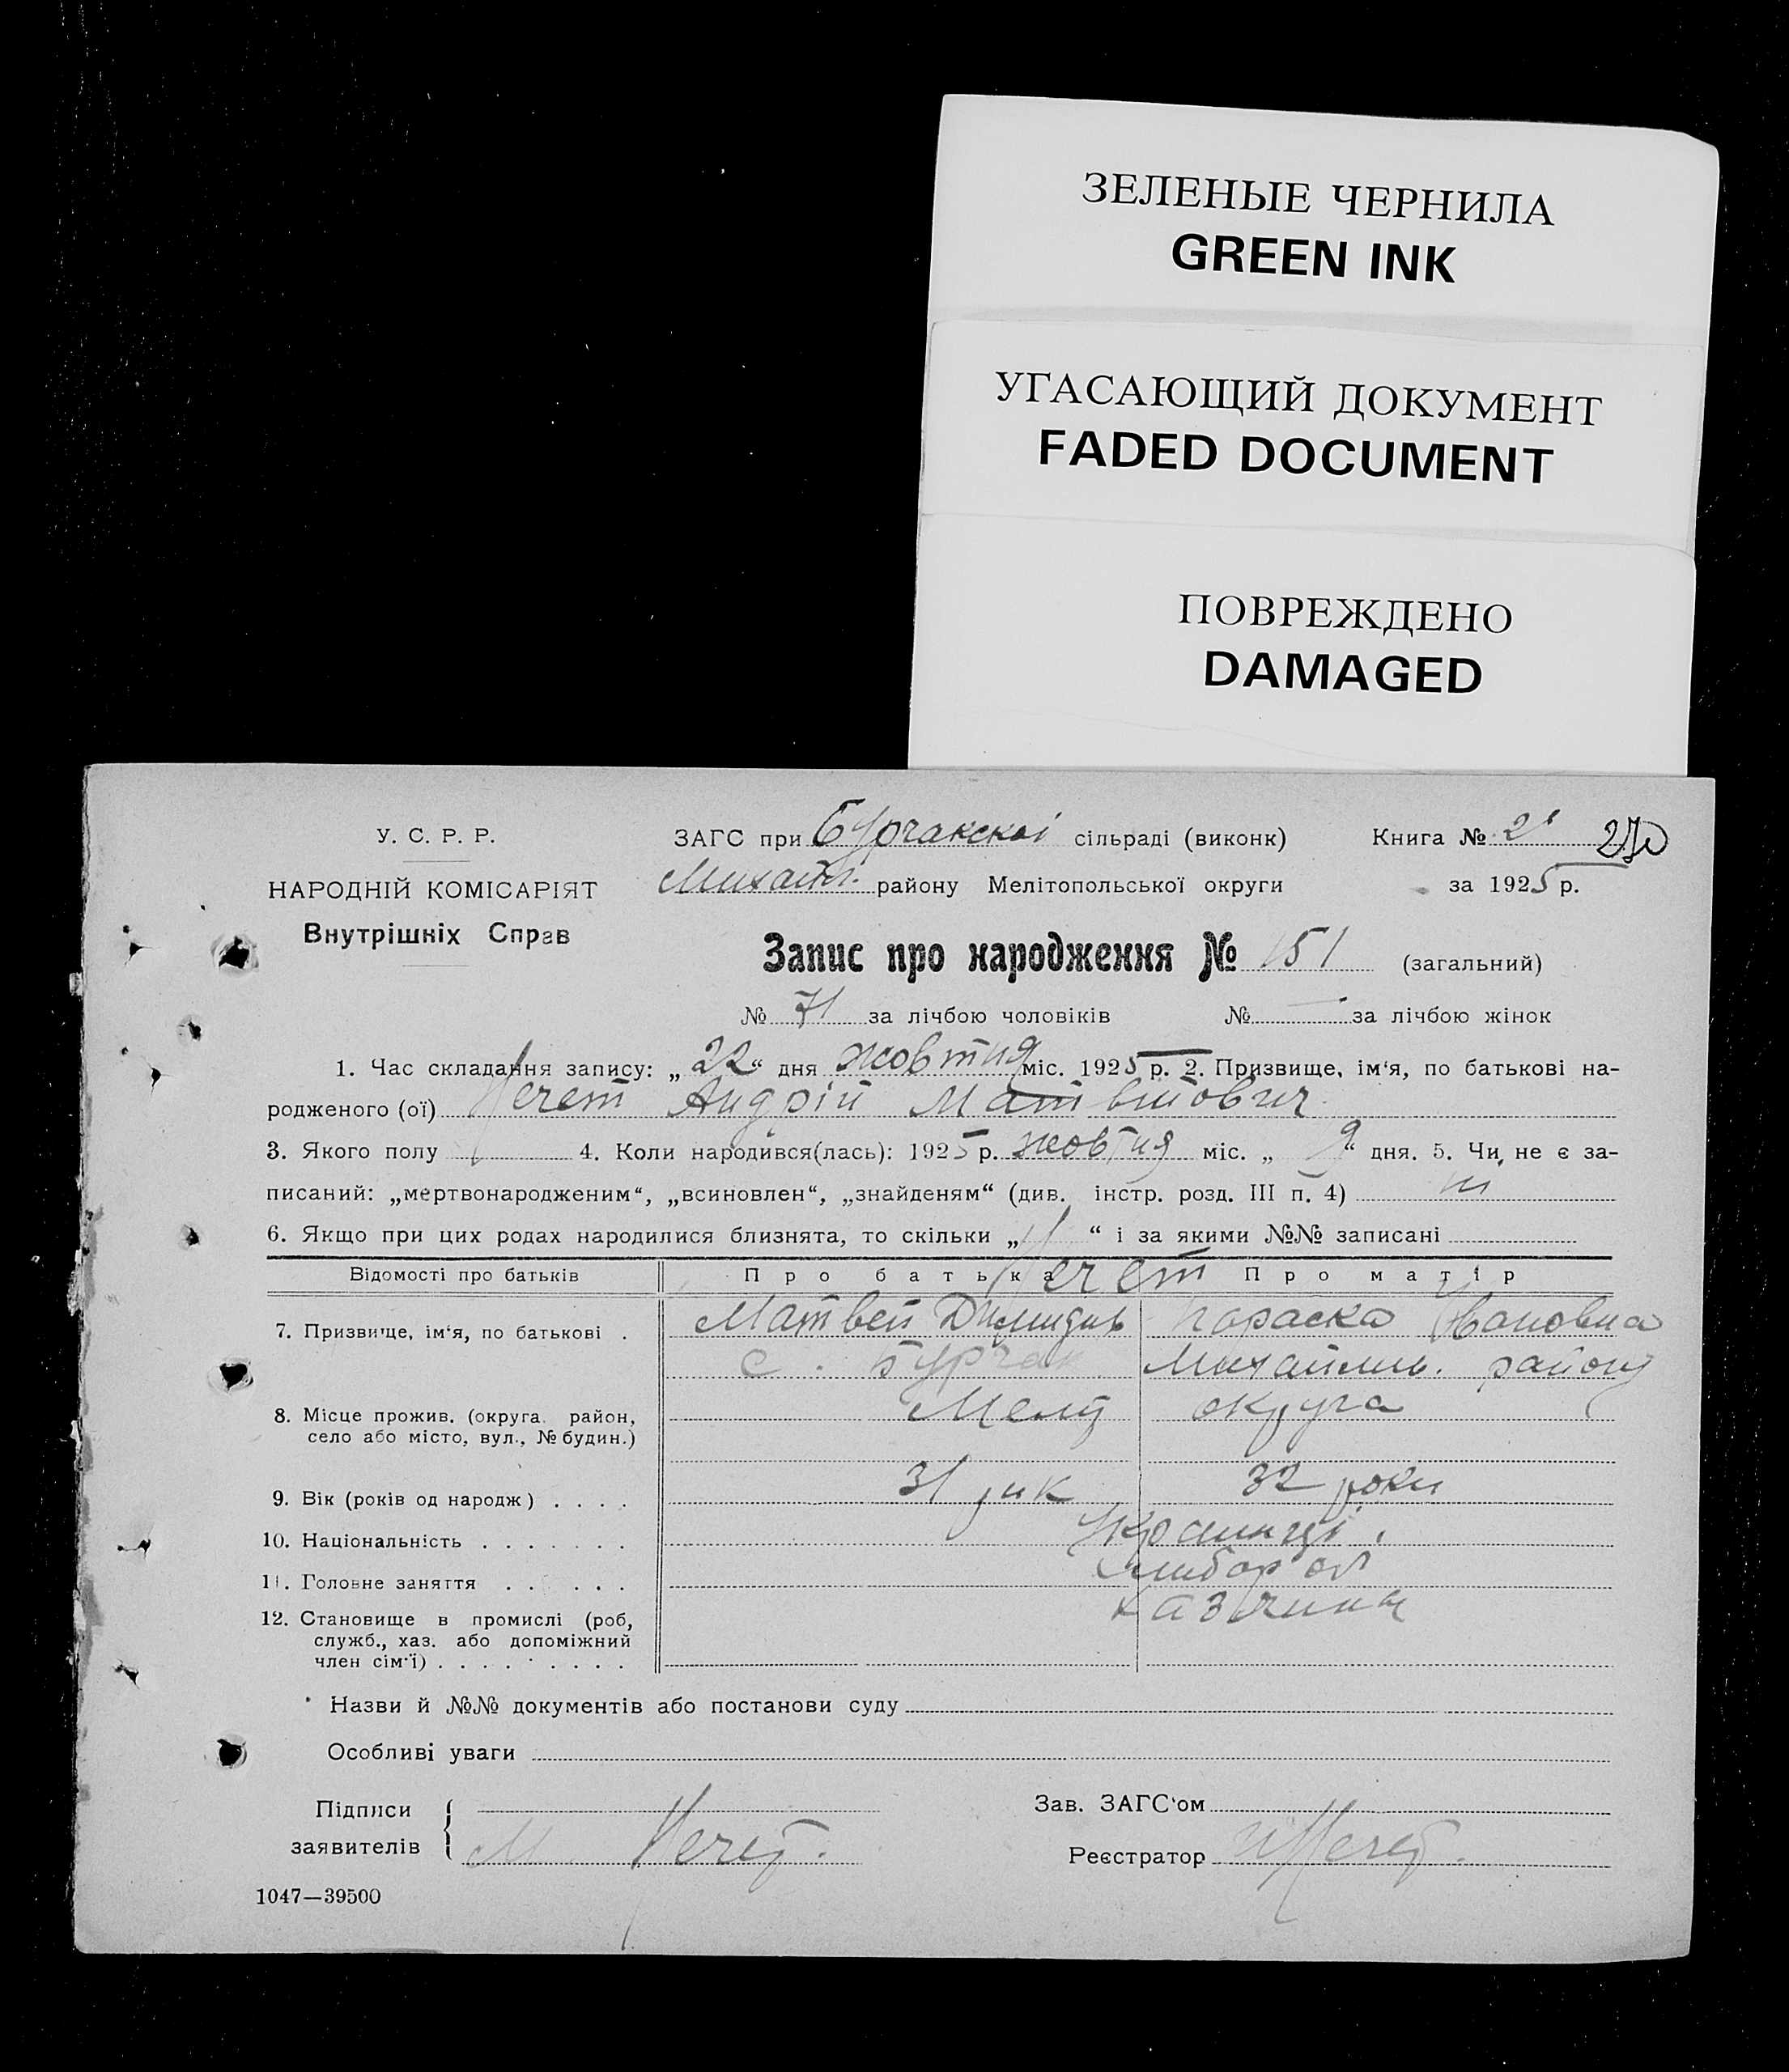 ЗЕЛЕНЫЕ ЧЕРНИЛА
GREEN INK
УГАСАЮЩИЙ ДОКУМЕНТ
FADED DOCUMENT
ПОВРЕЖДЕНО
DAMAGED
У. С. Р. Р.
НАРОДНІЙ КОМІСАРІЯТ
Внутрішніх Справ
ЗАГС при Бурчакскоі сільраді (виконк) Книга № 2
Михайл. району Мелітопольської округи за 1925 р.
Запис про народження № 151 (загальний)
№ 71 за лічбою чоловіків № — за лічбою жінок
1. Час складання запису: „22“ дня жовтня міс. 1925 р. 2. Призвище, ім‘я, по батькові на-
родженого (ої) Нечет Андрій Матвійович
3. Якого полу 4. Коли народився(лась): 1925 р. жовтня міс. „9“ дня. 5. Чи не є за-
писаний: „мертвонародженим“, „всиновлен“, „знайденям“ (див. інстр. розд. III п. 4)
6. Якщо при цих родах народилися близнята, то скільки „ “ і за якими №№ записані
Відомості про батьків Про батька Про матір
Нечет
7. Призвище, ім‘я, по батькові . Матвей Параска Ивановна
с. Бурчак Михайлів. району
8. Місце прожив. (округа район, Меліт округа
село або місто, вул., № будин.)
9. Вік (років од народж) . . . . 31 рік 32 роки
10. Національність . . . . . . . Украінці
11. Головне заняття . . . . . . хлибороб
12. Становище в промислі (роб,
служб., хаз. або допоміжний
член сім‘ї) . . . . . . . . .
Назви й №№ документів або постанови суду
Особливі уваги
Підписи Зав. ЗАГС‘ом
заявителів М. Нечет. Реєстратор Нечет.
1047—39500